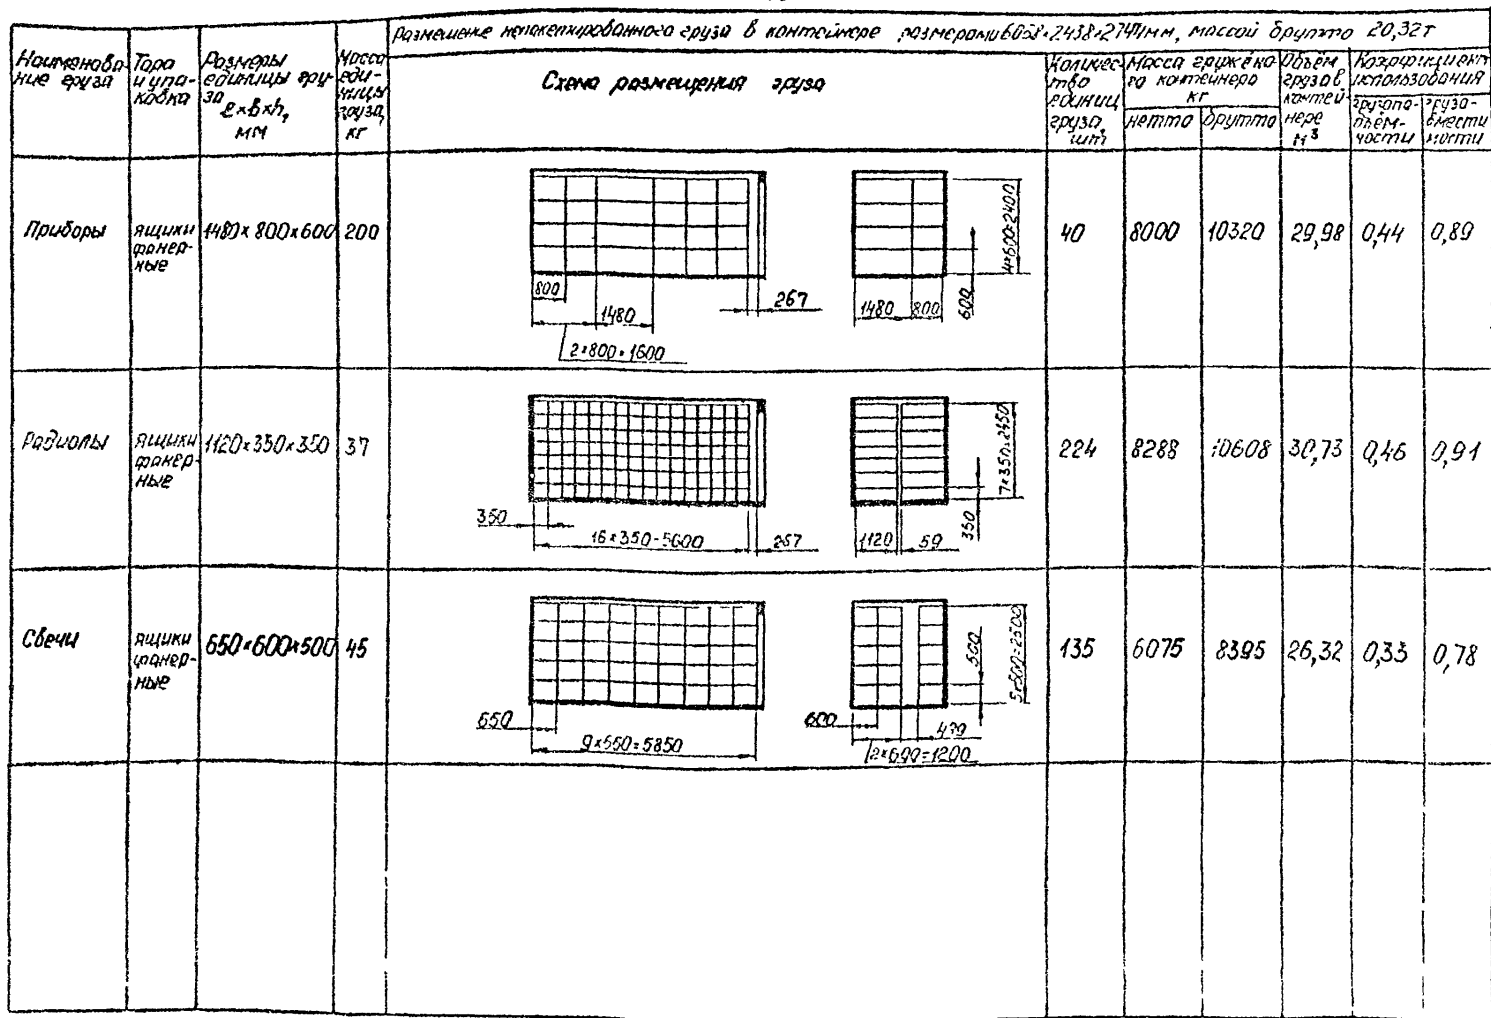 Размещение непакетированного груза в контейнере размерами 6058×2438×2747мм, массой брутто 20,32т
Наименова-
ние груза
Тара
и упа-
ковка
Размеры
единицы гру-
за
ℓ×b×h,
мм
Масса
еди-
ницы
груза,
кг
Схема размещения груза
Количес-
тво
единиц
груза,
шт
Масса гружёно-
го контейнера
кг
нетто
брутто
Объём
груза в
контей-
нере
м³
Коэффициент
использования
грузопо-
дъём-
ности
грузо-
вмести
мости
Приборы
ящики
фанер-
ные
1480×800×600
200
800
1480
2×800=1600
267
1480
800
600
4×600=2400
40
8000
10320
29,98
0,44
0,89
Радиолы
ящики
фанер-
ные
1120×350×350
37
350
16×350=5600
267
1120
59
350
7×350=2450
224
8288
10608
30,73
0,46
0,91
Свечи
ящики
фанер-
ные
650×600×500
45
650
9×650=5850
600
2×600=1200
439
500
5×500=2500
135
6075
8395
26,32
0,33
0,78